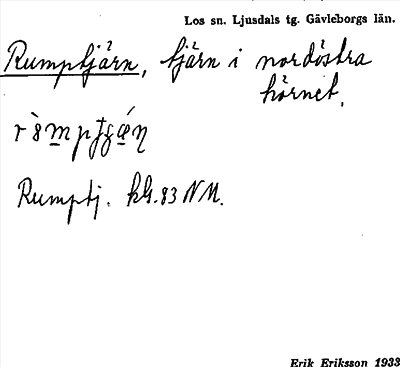 Los sn. Ljusdals tg. Gävleborgs län.
Rumptjärn, tjärn i nordöstra
hörnet.
Rumptj. kbl. 83 NM.
Erik Eriksson 1933